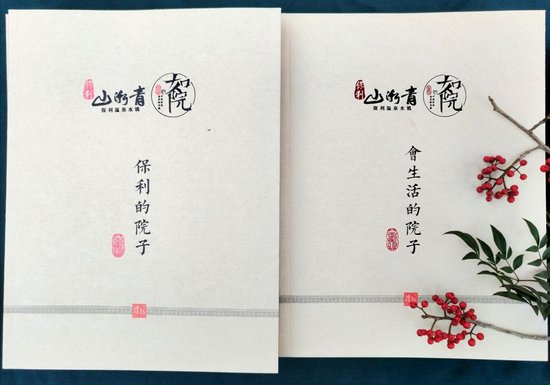 保利
山渐青
保利温泉水镇
保利的院子
保利
山渐青
保利温泉水镇
會生活的院子